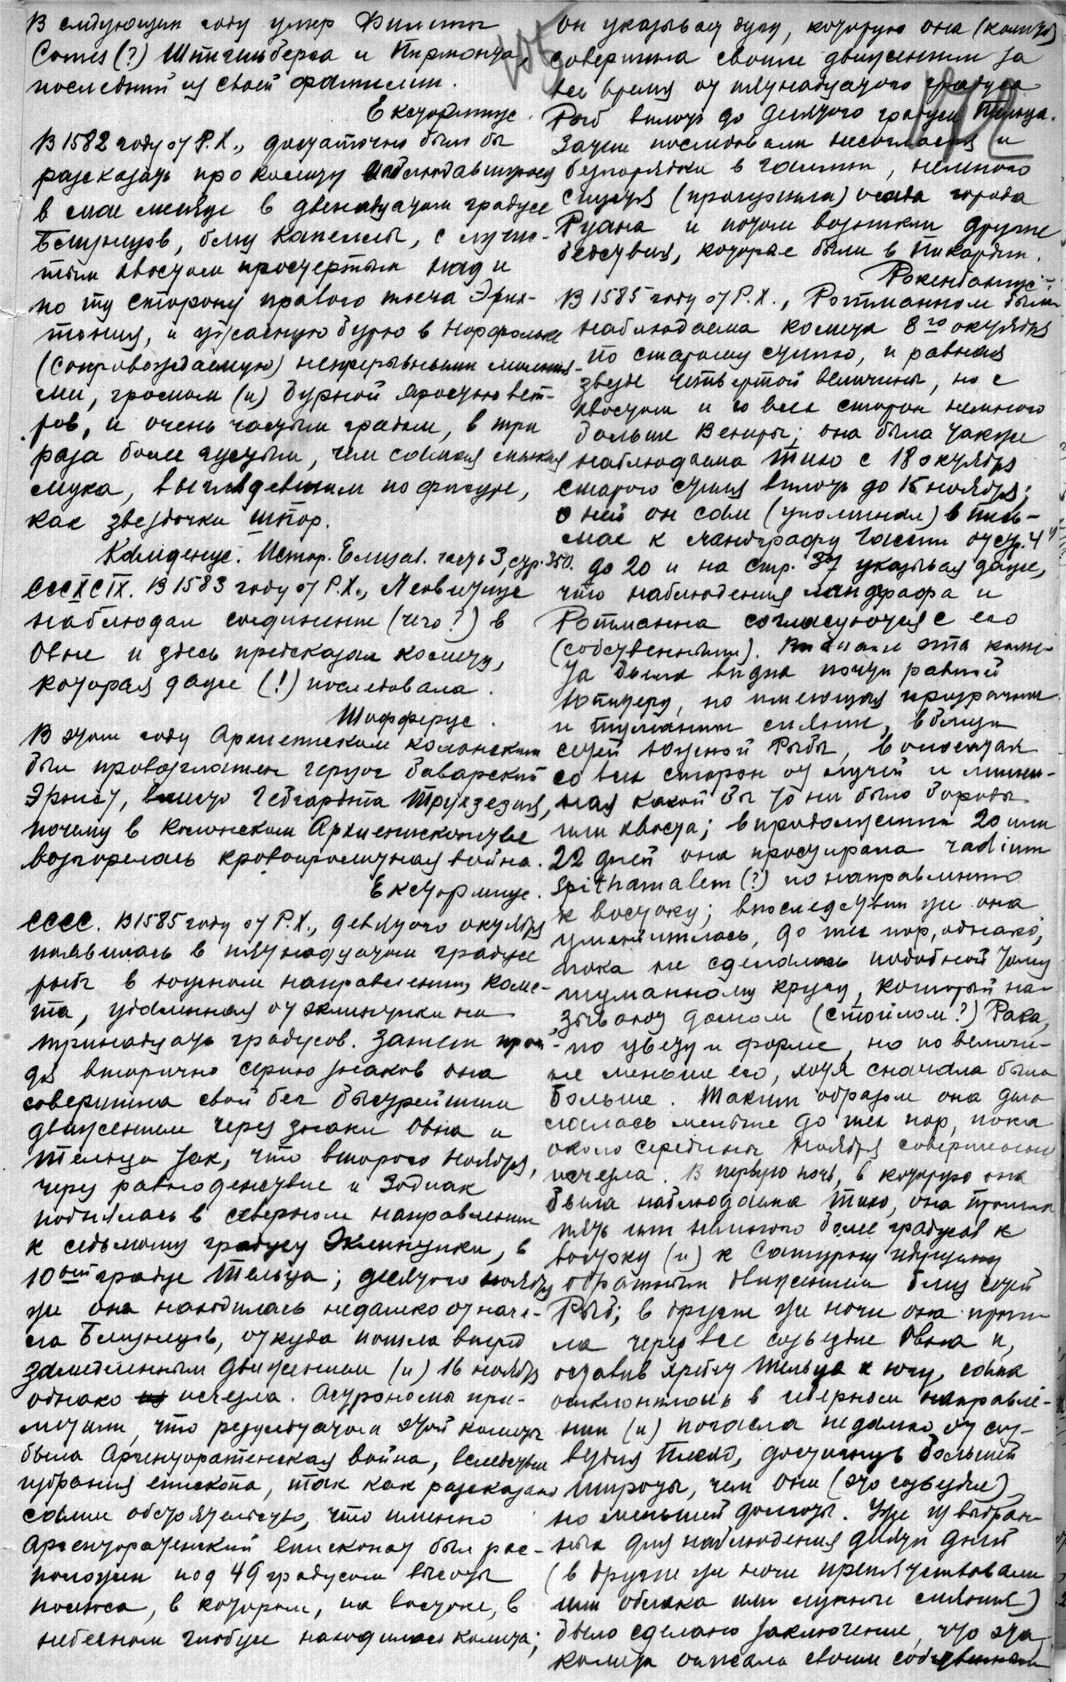 В следующем году умер Филипп
Comes (?) Шпигельберга и Пирмонта,
последний из своей фамилии.
Ексторміус.
В 1582 году от Р.Х., достаточно было бы
рассказать про комету наблюдавшуюся
в мае месяце в двенадцатом градусе
Близнецов, близ Капеллы, с лучис-
тым хвостом простертым над и
по ту сторону правого плеча Эрих-
тония, и ужасную бурю в Норфольке
(сопровождаемую) непрерывными молния-
ми, громом (и) бурной яростью вет-
ров, и очень частым градом, в три
раза более густым, чем самая
мука, выглядевшим по фигуре,
как звездочки шпор.
Камденус. Истор. Елизав. часть 3, стр. 350.
CCCXCIX. В 1583 году от Р.Х., Леовициус
наблюдал соединение (чего?) в
Овне и здесь предсказал комету,
которая даже (!) последовала.
Шафферус.
В этом году Архиепископом кельнским
был провозглашен герцог баварский
Эрнест, вместо Гебгардта Трухзеция,
почему в кельнском Архиепископстве
возгорелась кровопролитная война.
Ексторміус.
CCCC. В 1585 году от Р.Х., девятого октября
появилась в пятнадцатом градусе
рыб в южном направлении, коме-
та, удаленная от эклиптики на
тринадцать градусов. Затем прой-
дя вторично серию знаков она
совершила свой бег быстрейшим
движением через знаки Овна и
Тельца так, что второго ноября,
через равноденствие и Зодиак
поднялась в северном направлении
к седьмому градусу Эклиптики, в
10ый градус Тельца; десятого ноября
же она находилась недалеко от нача-
ла Близнецов, откуда пошла вперед
замедленным движением (и) 16 ноября
однако исчезла. Астрономы при-
мечали, что результатом этой кометы
была Аргенторатенская война, вследствие
избрания епископа, так как рассказано
самим обстоятельство, что именно
Аргенторатенский епископат был рас-
положен под 49 градусом высоты
полюса, в котором, на востоке, в
небесном глобусе находилась комета;
он указывал дугу, которую она (комета)
совершила своим движением за
все время от пятнадцатого градуса
Рыб вплоть до десятого градуса Тельца.
Затем последовали несогласия и
беспорядки в Галлии, немного
спустя (произошла) осада города
Руана и потом возникли другие
бедствия, которые были в Пикардии.
Рокенбациус.
В 1585 году от Р.Х., Ротманном была
наблюдаема комета 8го октября
по старому стилю, и равная
звезде четвертой величины, но с
хвостом и со всех сторон немного
больше Венеры; она была также
наблюдаема Тихо с 18 октября
старого стиля вплоть до 15 ноября;
о ней он сам (упоминал) в пись-
мах к ландграфу Гассии от стр. 4
до 20 и на стр. 37 указывая даже,
что наблюдения ландграфа и
Ротманна согласуются с его
(собственными). Вначале эта коме-
та была видна почти равной
Юпитеру, но имеющая призрачным
и туманным сияние, вблизи
сетей южной Рыбы, в волосах
со всех сторон от лучей и лишен-
ная какой бы то ни было бороды
или хвоста; в продолжении 20 или
22 дней она простирала radium
spithamalem (?) по направлению
к востоку; впоследствии же она
уменьшилась, до тех пор, однако,
пока не сделалась подобной тому
туманному кругу, который на-
зывают домом (стойлом?) Рака,
по цвету и форме, но по величи-
не меньше его, хотя сначала была
больше. Таким образом она дела-
лась меньше до тех пор, пока
около середины ноября совершенно
исчезла. В первую ночь, в которую она
была наблюдаема Тихо, она прошла
пять или немного более градусов к
востоку (и) к Сатурну идущему
обратным движением близ сетей
Рыб; в другие же ночи она прош-
ла через все созвездие Овна и,
оставив Тельца к югу, сама
отклонилась в северном направле-
нии (и) погасла недалеко от соз-
вездия Плеяд, достигнув большей
широты, чем они (это созвездие),
но меньшей долготы. Уже из выбран-
ных для наблюдения девяти дней
(в другие же ночи препятствовали
или облака или лунные сияния)
было сделано заключение, что эта
комета описала своим собственным